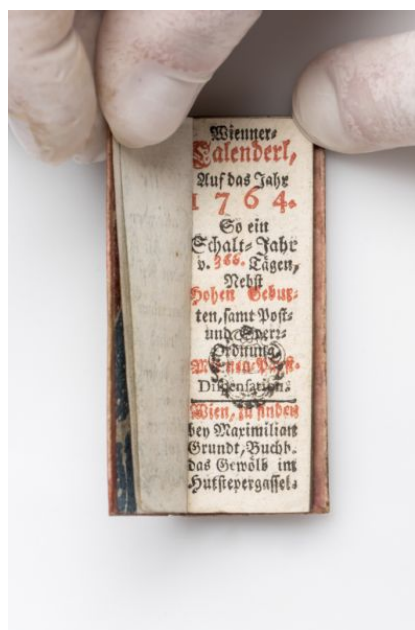 Wienner-
Calenderl,
Auf das Jahr
1764.
So ein
Schalt-Jahr
v. 366. Tägen,
Nebst
Hohen Gebur-
ten, samt Post-
und Sperr-
Ordnung,
Dispensation.
Wien, zu finden
bey Maximilian
Grundt, Buchb.
das Gewölb im